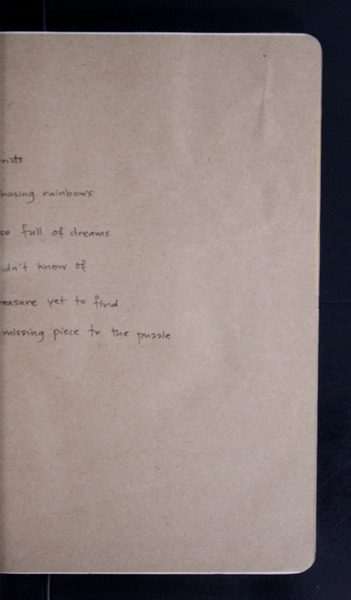 hasing rainbows
so full of dreams
idn't know of
reasure yet to find
missing piece to the puzzle